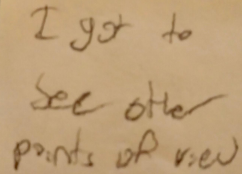 I got to
see other
points of view